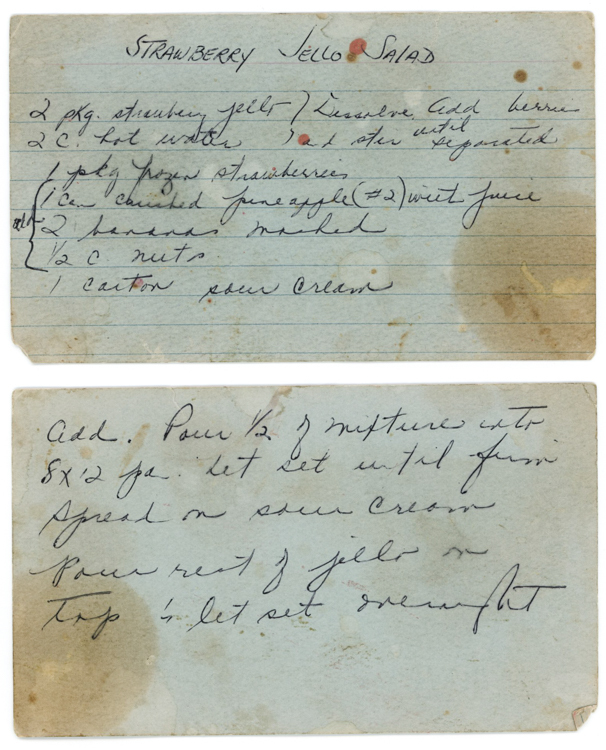 STRAWBERRY JELLO SALAD
2 pkg. strawberry jello } Dissolve. Add berries
2 C. hot water } and stir until separated
1 pkg frozen strawberries
1 can crushed pineapple (#2) with juice
add { 2 bananas mashed
1/2 C nuts
1 carton sour cream
add. Pour 1/2 of mixture into
8x12 pa. Let set until firm
Spread on sour cream
Pour rest of jello on
top & let set overnight